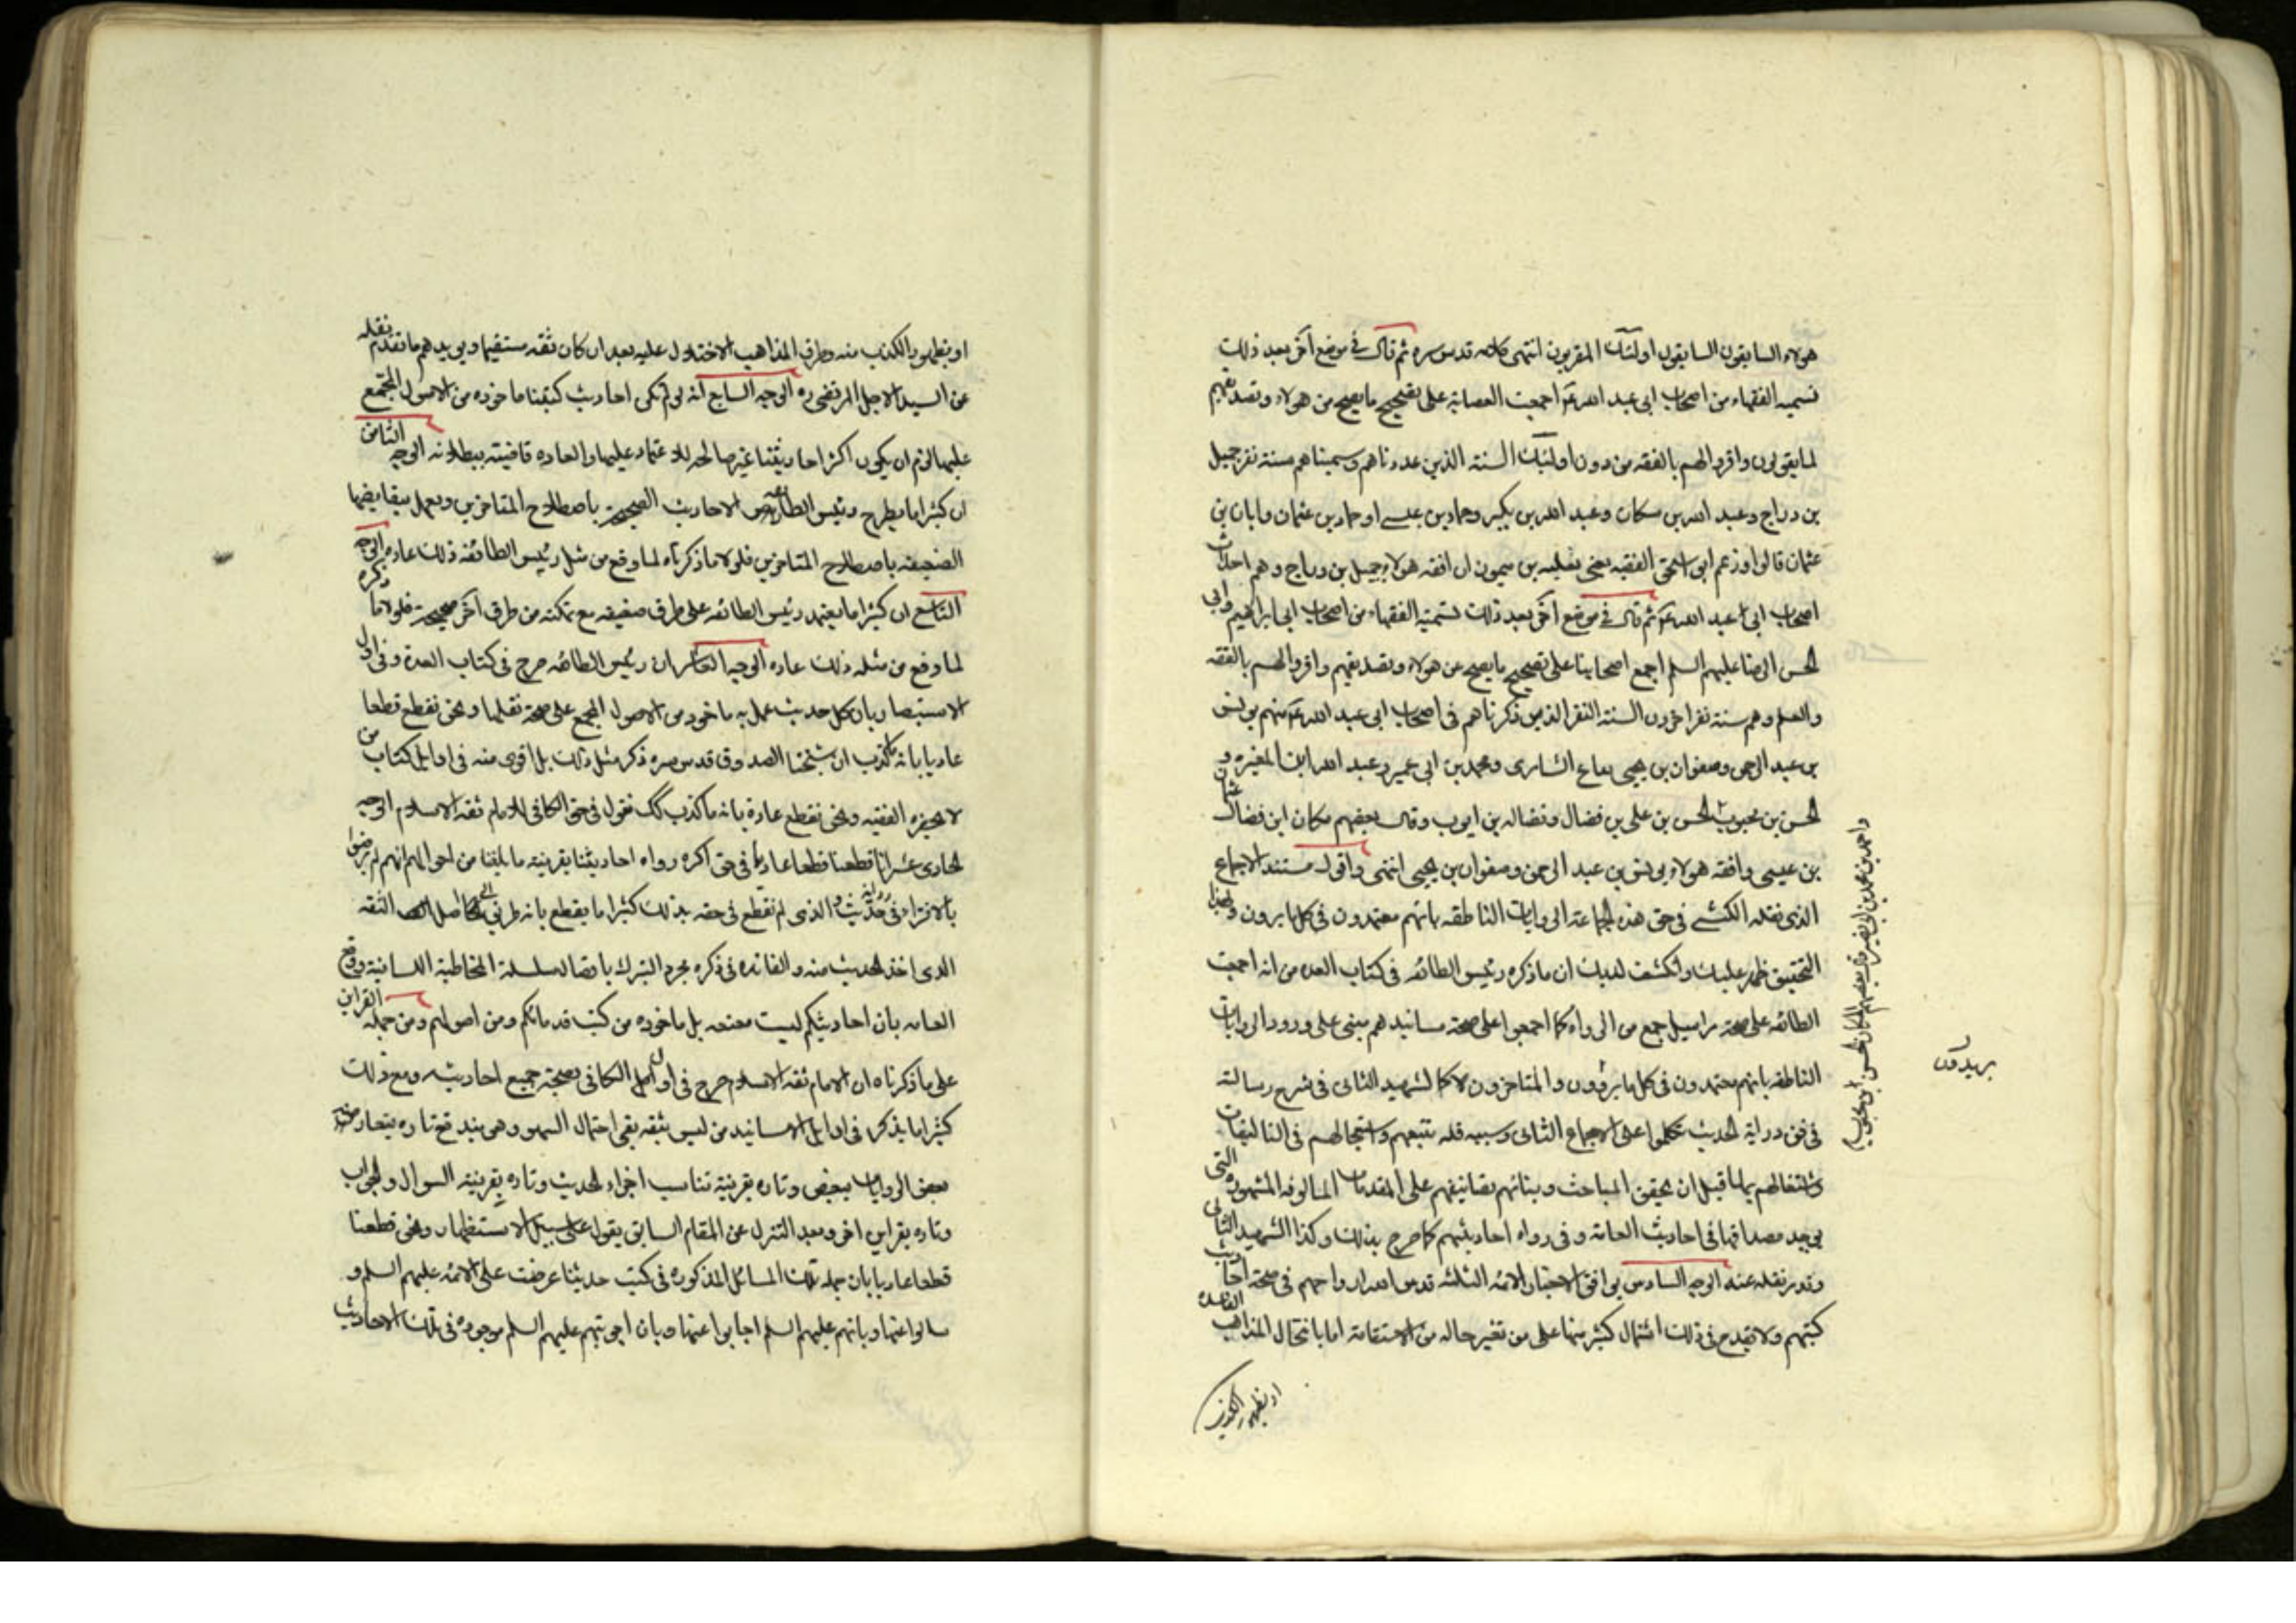 هولاء السابقون السابقون اولئك المقربون انتهى كلامه قدس سره ثم قال في موضع آخر بعد ذلك
تسميه الفقهاء من اصحاب ابي عبد الله ع اجمعت العصابة على تصحيح ما يصح من هولاء وتصديقهم
لما يقولون واقروا لهم بالفقه من دون اولئك الستة الذين عددناهم وسميناهم ستة نفر جميل
بن دراج وعبد الله بن مسكان وعبد الله بن بكير وحماد بن عيسى او حماد بن عثمان وابان بن
عثمان قالوا وزعم ابو اسحق الفقيه يعني ثعلبه بن ميمون ان افقه هولاء جميل بن دراج وهم احداث
اصحاب ابي عبد الله ع ثم قال في موضع آخر بعد ذلك تسمية الفقهاء من اصحاب ابي ابراهيم وابي
الحسن الرضا عليهم السلم اجمع اصحابنا على تصحيح ما يصح عن هولاء وتصديقهم واقروا لهم بالفقه
والعلم وهم ستة نفر اخرون الستة النفر الذين ذكرناهم في اصحاب ابي عبد الله ع منهم يونس
بن عبد الرحمن وصفوان بن يحيى بياع السابري ومحمد بن ابي عمير وعبد الله ابن المغيره و
الحسن بن محبوب الحسن بن علي بن فضال وفضاله بن ايوب وقال بعضهم مكان ابن فضال عثمان
بن عيسى وافقه هولاء يونس بن عبد الرحمن وصفوان بن يحيى انتهى واقول مستند الاجماع
الذي نقله الكشي في حق هذه الجماعة الروايات الناطقه بانهم معتمدون في كل ما يرون وبهذا
التحقيق ظهر عليك وانكشف لديك ان ما ذكره رئيس الطائفه في كتاب العده من انه اجمعت
الطائفه على صحة مراسيل جمع من الرواة كما اجمعوا على صحة مسانيدهم مبني على ورود الروايات
الناطقه بانهم معتمدون في كل ما يروون والمتاخرون لا كالشهيد الثاني في شرح رسالته
في فن دراية الحديث تكلموا على الاجماع الثاني وسببه قله تتبعهم واستعجالهم في التاليفات
واشتغالهم بها قبل ان يحقق المباحث وبنائهم تصانيفهم على المقدمات المالوفه المشهوره التي
يوجد مصداقها في احاديث العامة وفي رواه احاديثهم كما صرح بذلك وكذا الشهيد الثاني
وقد نقله عنه الوجه السادس توافق الاخبار الائمه الثلثه قدس الله ارواحهم في صحة احاديث
كتبهم ولا يقدح في ذلك اشتمال كثير منها على من تغير حاله من الاستقامة اما بانتحال المذاهب الفاسده
او بظهور الكذب
واحمد بن محمد بن ابي نصر وقال بعضهم مكان الحسن بن محبوب
يريدون
او بظهور الكذب منه وطرق المذاهب الاختلال عليه بعد ان كان ثقه مستقيما ويؤيدهم ما تقدم نقله
عن السيد الاجل المرتضى ره الوجه السابع انه لو لم تكن احاديث كتبنا ماخوذه من الاصول المجمع
عليها لزم ان يكون اكثر احاديثنا غير صالحه للاعتماد عليها والعاده قاضيته ببطلانه الوجه الثامن
ان كثيرا ما يطرح رئيس الطائفه الاحاديث الصحيحة باصطلاح المتاخرين ويعمل بنقايضها
الضعيفه باصطلاح المتاخرين فلولا ما ذكرناه لما وقع من مثل رئيس الطائفه ذلك عادة الوجه
التاسع ان كثيرا ما يعتمد رئيس الطائفه على طرق ضعيفه مع تمكنه من طرق آخر صحيحة فلولا ما ذكره
لما وقع من مثله ذلك عاده الوجه العاشر ان رئيس الطائفه صرح في كتاب العدة وفي اول
الاستبصار بان كل حديث عمل به ماخوذ من الاصول المجمع على صحة نقلها ونحن نقطع قطعا
عاديا بانه ما كذب ان شيخنا الصدوق قدس سره ذكر مثل ذلك بل اقوى منه في اوايل كتاب من
لا يحضره الفقيه ونحن نقطع عادة بانه ما كذب كك نقول في حق الكافي للامام ثقه الاسلام الوجه
الحادي عشر انا قطعنا قطعا عاديا في حق اكثر رواه احاديثنا بقرينه ما بلغنا من احوالهم انهم لم يرضوا
بالافتراء في رواية حديث والذي لم نقطع في حقه بذلك كثيرا ما يقطع بانه طريق الى اصل الثقه
الذي اخذ الحديث منه والفائده في ذكره مجرد التبرك باتصال سلسلة المخاطبة اللسانية ودفع
العامه بان احاديثكم ليست معنعنه بل ماخوذه من كتب قدمائكم ومن اصولهم ومن جمله القراين
على ما ذكرناه ان الامام ثقه الاسلام صرح في اوايل الكافي بصحة جميع احاديثه ومع ذلك
كثيرا ما يذكر في اوايل الاسانيد من ليس بثقه بقي احتمال السهو وهو يندفع تاره بتعاضد
بعض الروايات ببعض وتاره بقرينة تناسب اجزاء الحديث وتاره بقرينة السوال والجواب
وتاره بقراين اخر وبعد التنزل عن المقام السابق يقول على سبيل الاستظهار ونحن قطعنا
قطعا عاديا بان جمله تلك المسائل المذكوره في كتب حديثنا عرضت على الائمه عليهم السلم و
سالوا عنها وبانهم عليهم السلم اجابوا عنها وبان اجوبتهم عليهم السلم موجوده في تلك الاحاديث